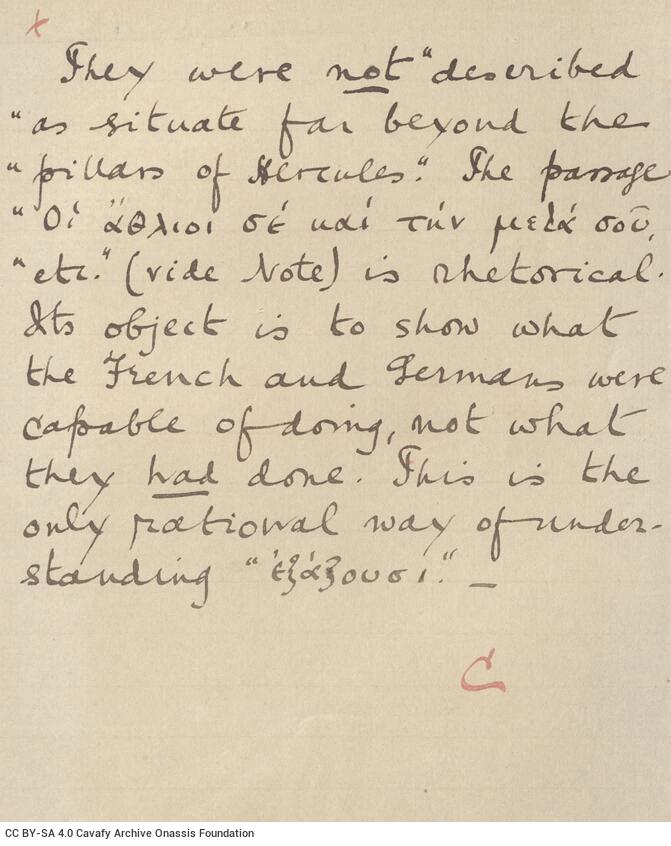 x
They were not "described
"as situate far beyond the
"pillars of Hercules". The passage
"Οἱ ἄθλιοι σέ καί τήν μετά σοῦ,
"etc." (vide Note) is rhetorical.
Its object is to show what
the French and Germans were
capable of doing, not what
they had done. This is the
only rational way of under-
standing "ἐξάξουσι". —
C
CC BY-SA 4.0 Cavafy Archive Onassis Foundation